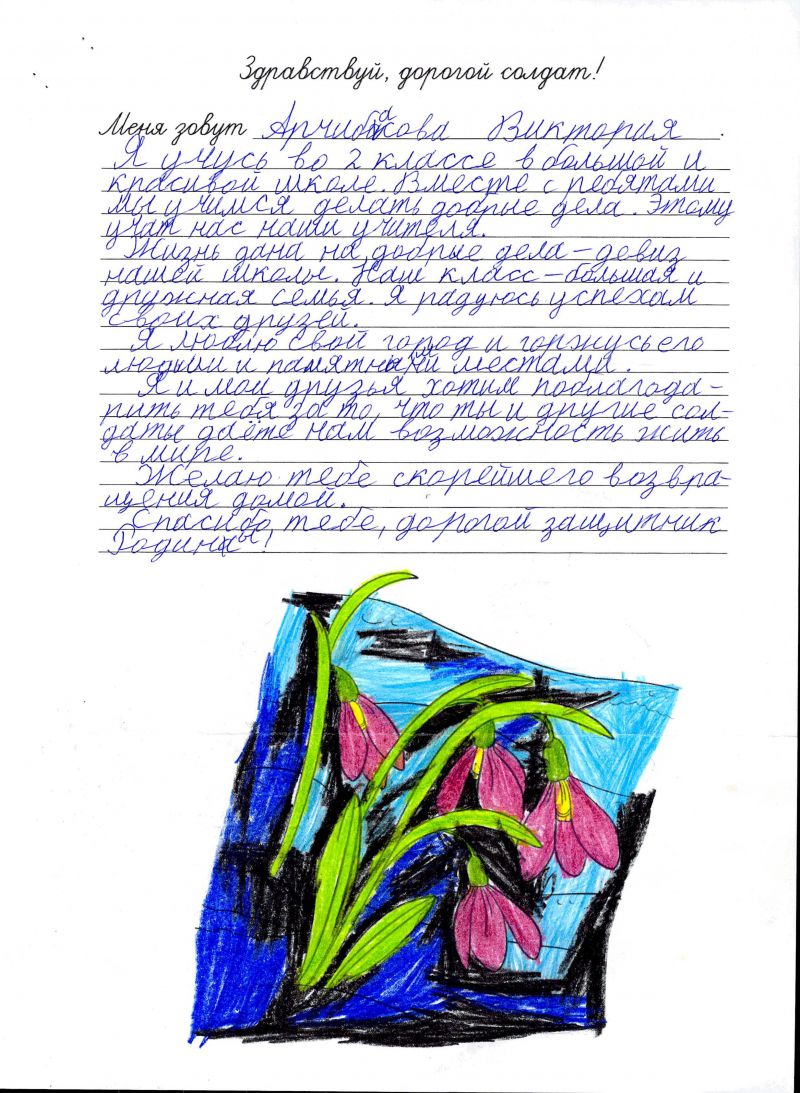 Здравствуй, дорогой солдат!
Меня зовут Арчибакова Виктория.
Я учусь во 2 классе в большой и
красивой школе. Вместе с ребятами
мы учимся делать добрые дела. Этому
учат нас наши учителя.
Жизнь дана на добрые дела – девиз
нашей школы. Наш класс – большая и
дружная семья. Я радуюсь успехам
своих друзей.
Я люблю свой город и горжусь его
людьми и памятными местами.
Я и мои друзья хотим поблагода-
рить тебя за то, что ты и другие сол-
даты даёте нам возможность жить
в мире.
Желаю тебе скорейшего возвра-
щения домой.
Спасибо тебе, дорогой защитник
Родины!